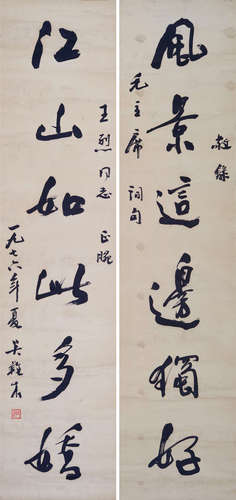 風景這邊獨好
敬錄
毛主席詞句
江山如此多嬌
王烈同志 正腕
一九七六年夏 吳